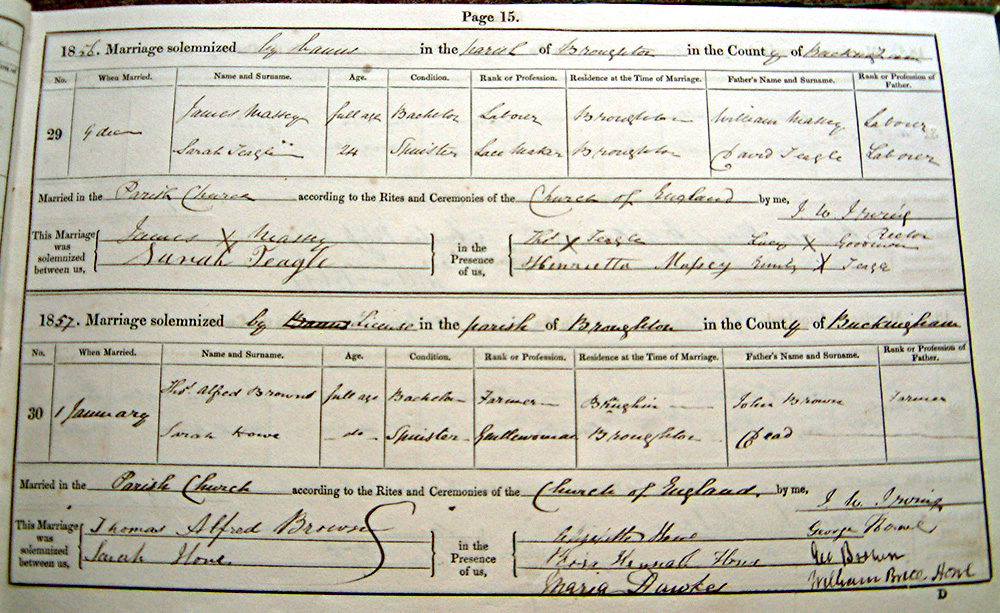 Page 15.
1856. Marriage solemnized by banns in the parish of Broughton in the County of Buckingham
No. When Married. Name and Surname. Age. Condition. Rank or Profession. Residence at the Time of Marriage. Father's Name and Surname. Rank or Profession of Father.
29 9 dec James Massey full age Bachelor Laborer Broughton William Massey Laborer
Sarah Teagle 24 Spinster Lace Maker Broughton David Teagle Laborer
Married in the Parish Church according to the Rites and Ceremonies of the Church of England by me, J. W. Irving
Rector
This Marriage was solemnized between us, James X Massey in the Presence of us, Thos X Teagle Lucy X Goodman
Sarah Teagle Henrietta Massey Emily X Teagle
1857. Marriage solemnized by Banns License in the parish of Broughton in the County of Buckingham
No. When Married. Name and Surname. Age. Condition. Rank or Profession. Residence at the Time of Marriage. Father's Name and Surname. Rank or Profession of Father.
30 1 January Thos. Alfred Browne full age Bachelor Farmer John Brown Farmer
Sarah Howe do Spinster Gentlewoman Broughton Dead
Married in the Parish Church according to the Rites and Ceremonies of the Church of England, by me, J. W. Irving
This Marriage was solemnized between us, Thomas Alfred Browne in the Presence of us, Howe George Howe
Sarah Howe Hannah Howe Geo Brown
Maria Dawkes William Howe
D